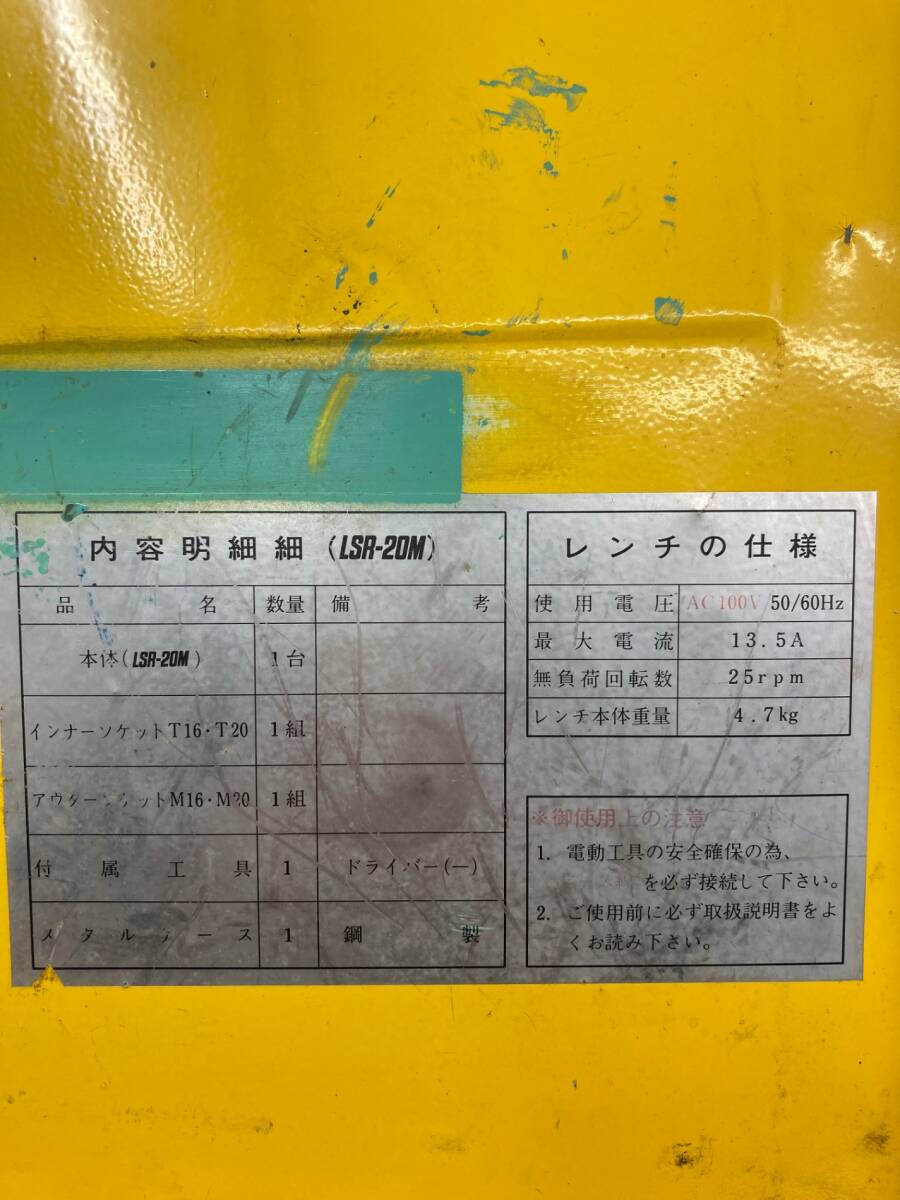 内容明細細 (LSR-20M)
品名 数量 備考
本体(LSR-20M) 1台
インナーソケットT16・T20 1組
アウターソケットM16・M20 1組
付属工具 1 ドライバー(－)
メタルケース 1 鋼製
レンチの仕様
使用電圧 AC100V 50/60Hz
最大電流 13.5A
無負荷回転数 25rpm
レンチ本体重量 4.7kg
※御使用上の注意
1. 電動工具の安全確保の為、
を必ず接続して下さい。
2. ご使用前に必ず取扱説明書をよ
くお読み下さい。